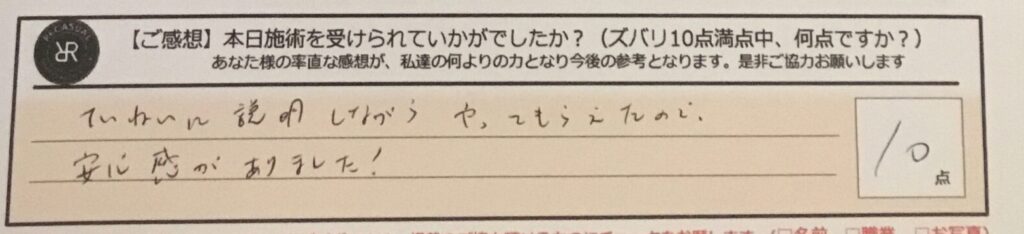 【ご感想】本日施術を受けられていかがでしたか？（ズバリ10点満点中、何点ですか？）
あなた様の率直な感想が、私達の何よりの力となり今後の参考となります。是非ご協力お願いします
ていねいに説明しながらやってもらえたので、
安心感がありました！
10点